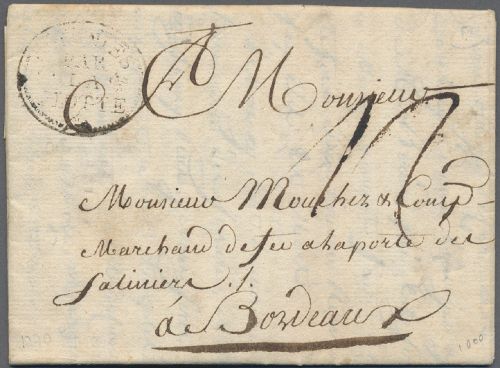 PAR
A Monsieur
Monsieur Mouchez & Comp
Marchand de fer a la porte des
Saliniers ./.
à Bordeaux
1790
1000